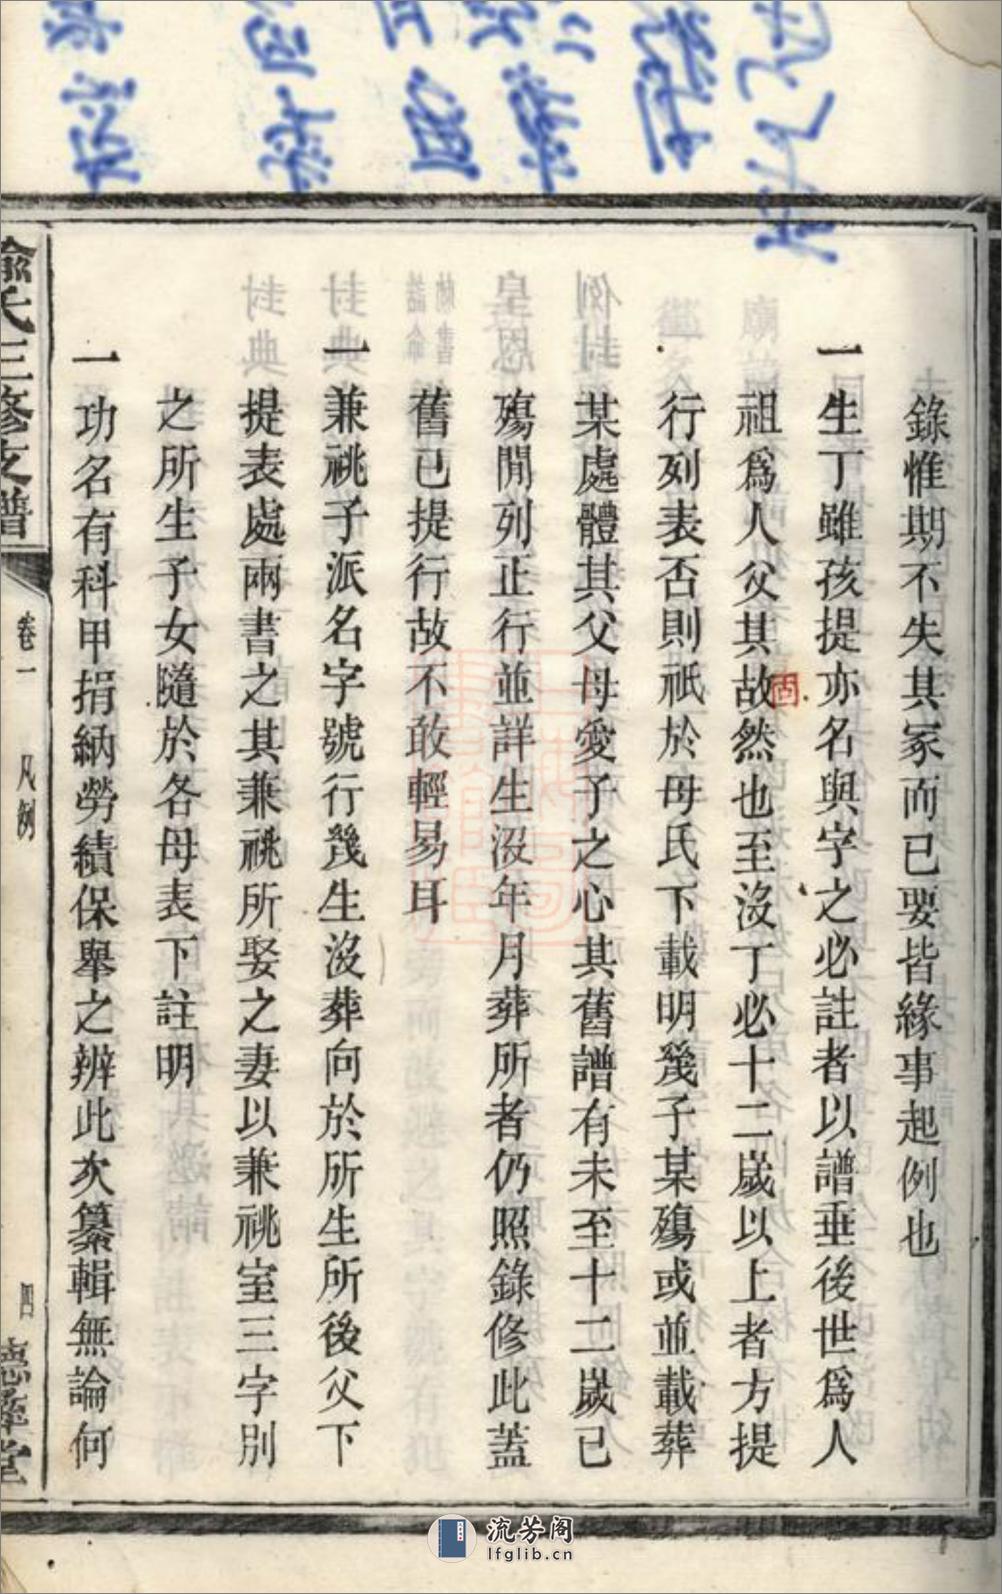 錄惟期不失其家而已要皆緣事起例也
一生丁雖孩提亦名與字之必註者以譜垂後世爲人
祖爲人父其故然也至沒丁必十二歲以上者方提
行列表否則祇於母氏下載明幾子某殤或並載葬
某處體其父母愛子之心其舊譜有未至十二歲已
殤閒列正行並詳生沒年月葬所者仍照錄修此蓋
舊已提行故不敢輕易耳
一兼祧子派名字號行幾生沒葬向於所生所後父下
提表處兩書之其兼祧所娶之妻以兼祧室三字別
之所生子女隨於各母表下註明
一功名有科甲捐納勞績保舉之辨此次纂輯無論何
俞氏三修支譜
卷一
凡例
四
德澤堂
固
流芳阁
lfglib.cn